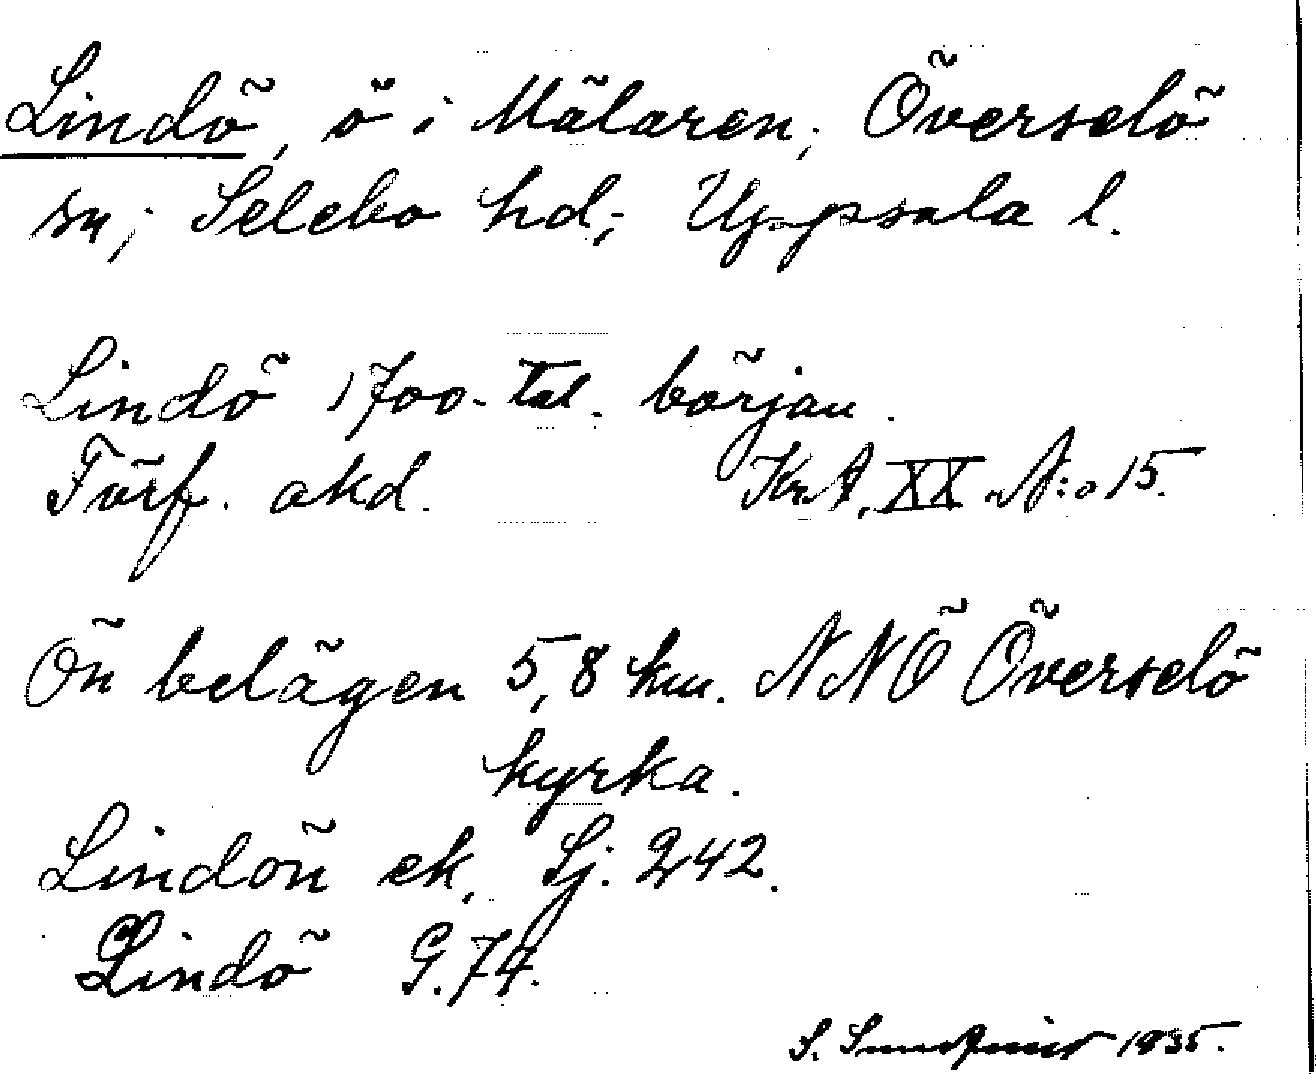 Lindö, ö i Mälaren; Överselö
sn; Selebo hd; Uppsala l.
Lindö 1700-tal. början.
Förf. okd. KrA. XX N:o 15.
Ön belägen 5,8 km. NNÖ Överselö
kyrka.
Lindön ek. Sj. 242.
Lindö G. 74.
S. 1935.